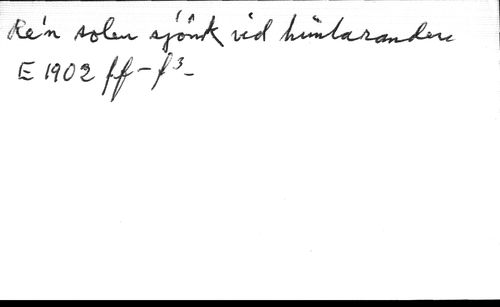 Re'n solen sjönk vid himlaranden
E 1902 ff - f³ -